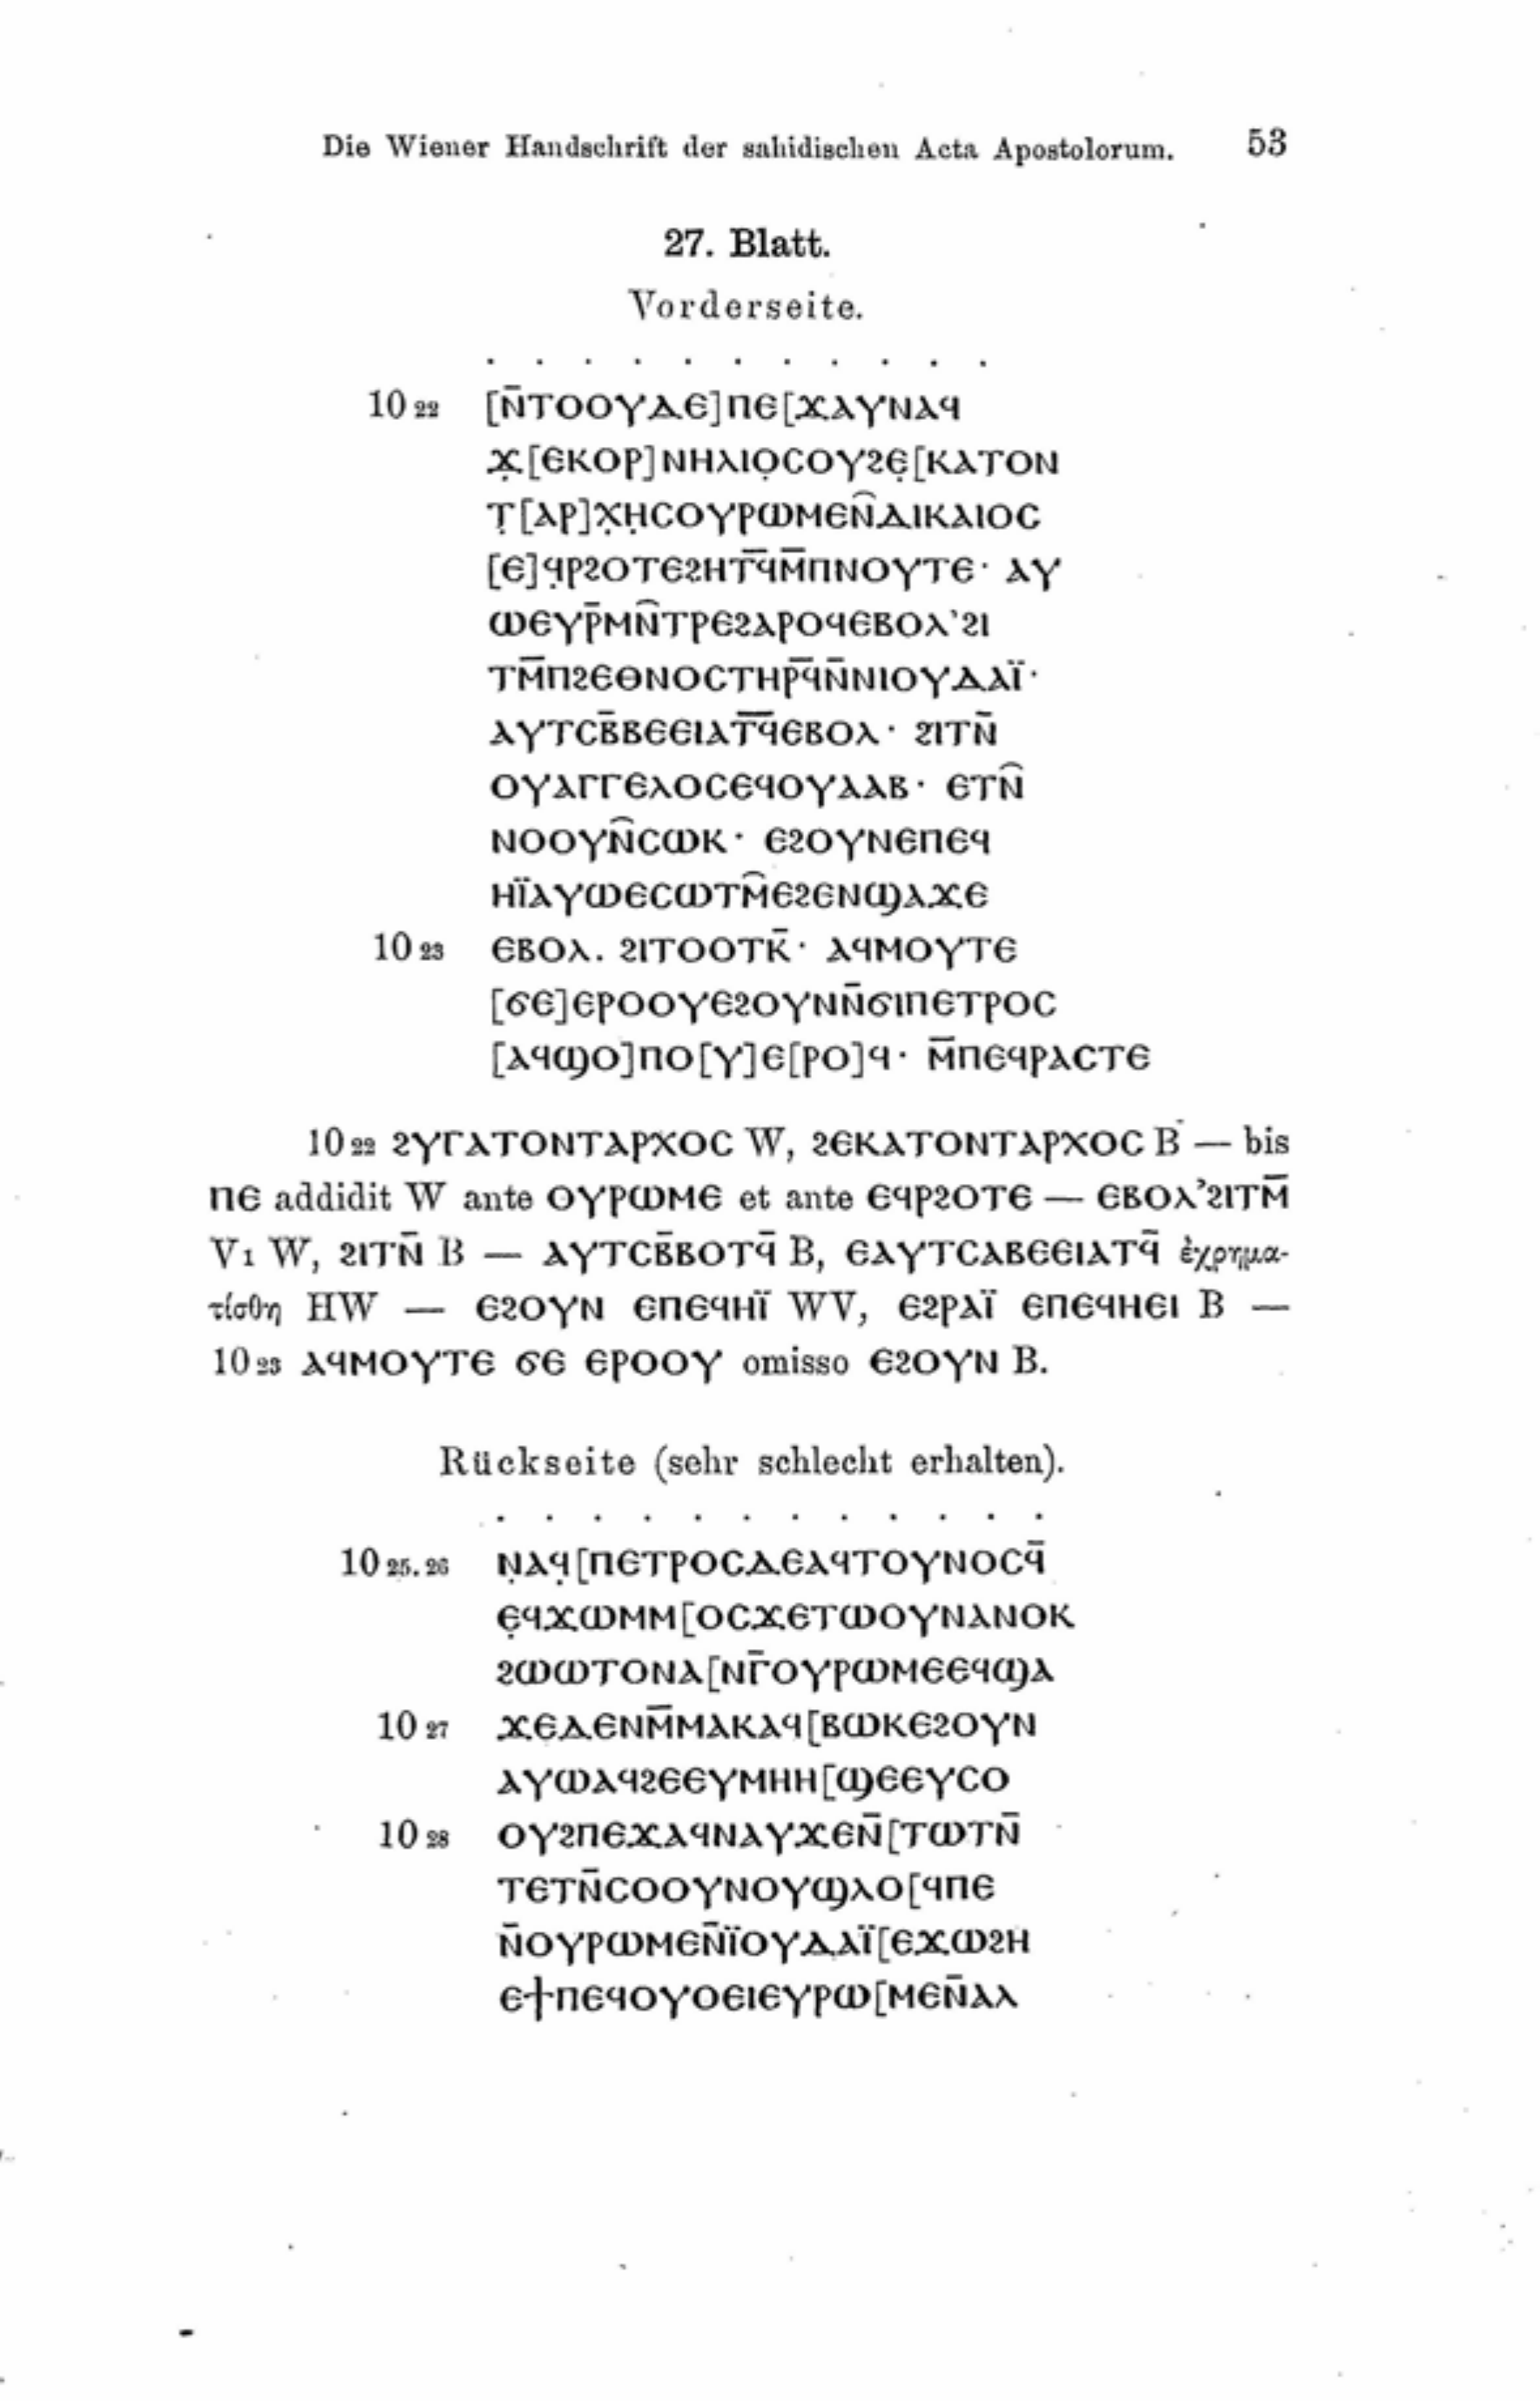 Die Wiener Handschrift der sahidischen Acta Apostolorum. 53
27. Blatt.
Vorderseite.
. . . . . . . . . . .
10 22 [Ⲛ̄ⲦⲞⲞⲨⲆⲈ]ⲠⲈ[ϪⲀⲨⲚⲀϤ
Ϫ̣[ⲈⲔⲞⲢ]ⲚⲎⲖⲒⲞ̣ⲤⲞⲨϨⲈ̣[ⲔⲀⲦⲞⲚ
Ⲧ̣[ⲀⲢ]Ⲭ̣Ⲏ̣ⲤⲞⲨⲢⲰⲘⲈⲚ̑ⲆⲒⲔⲀⲒⲞⲤ
[Ⲉ]Ϥ̣ⲢϨⲞⲦⲈϨⲎⲦ̄Ϥ̄Ⲙ̄ⲠⲚⲞⲨⲦⲈ· ⲀⲨ
ⲰⲈⲨⲢ̄ⲘⲚ̑ⲦⲢⲈϨⲀⲢⲞϤⲈⲂⲞⲖ’ϨⲒ
ⲦⲘ̄ⲠϨⲈⲐⲚⲞⲤⲦⲎⲢ̄Ϥ̄Ⲛ̄ⲚⲒⲞⲨⲆⲀⲒ̈·
ⲀⲨⲦⲤⲂ̄ⲂⲈⲈⲒⲀⲦ̄Ϥ̄ⲈⲂⲞⲖ· ϨⲒⲦⲚ̄
ⲞⲨⲀⲄⲄⲈⲖⲞⲤⲈϤⲞⲨⲀⲀⲂ· ⲈⲦⲚ̑
ⲚⲞⲞⲨⲚ̑ⲤⲰⲔ· ⲈϨⲞⲨⲚⲈⲠⲈϤ
ⲎⲒ̈ⲀⲨⲰⲈⲤⲰⲦⲘ̑ⲈϨⲈⲚϢⲀϪⲈ
10 23 ⲈⲂⲞⲖ. ϨⲒⲦⲞⲞⲦⲔ̄· ⲀϤⲘⲞⲨⲦⲈ
[ϬⲈ]ⲈⲢⲞⲞⲨⲈϨⲞⲨⲚⲚ̄ϬⲒⲠⲈⲦⲢⲞⲤ
[ⲀϤϢⲞ]ⲠⲞ[Ⲩ]Ⲉ[ⲢⲞ]Ϥ· Ⲙ̄ⲠⲈϤⲢⲀⲤⲦⲈ
10 22 ϨⲨⲄⲀⲦⲞⲚⲦⲀⲢⲬⲞⲤ W, ϨⲈⲔⲀⲦⲞⲚⲦⲀⲢⲬⲞⲤ B — bis
ⲠⲈ addidit W ante ⲞⲨⲢⲰⲘⲈ et ante ⲈϤⲢϨⲞⲦⲈ — ⲈⲂⲞⲖ’ϨⲒⲦⲘ̄
V1 W, ϨⲒⲦⲚ̄ B — ⲀⲨⲦⲤⲂ̄ⲂⲞⲦϤ̄ B, ⲈⲀⲨⲦⲤⲀⲂⲈⲈⲒⲀⲦϤ̄ ἐχρημα-
τίσθη HW — ⲈϨⲞⲨⲚ ⲈⲠⲈϤⲎⲒ̈ WV, ⲈϨⲢⲀⲒ̈ ⲈⲠⲈϤⲎⲈⲒ B —
10 23 ⲀϤⲘⲞⲨⲦⲈ ϬⲈ ⲈⲢⲞⲞⲨ omisso ⲈϨⲞⲨⲚ B.
Rückseite (sehr schlecht erhalten).
. . . . . . . . . . . .
10 25. 26 Ⲛ̣ⲀϤ̣[ⲠⲈⲦⲢⲞⲤⲆⲈⲀϤⲦⲞⲨⲚⲞⲤϤ̄
Ⲉ̣ϤϪⲰⲘⲘ[ⲞⲤϪⲈⲦⲰⲞⲨⲚⲀⲚⲞⲔ
ϨⲰⲰⲦⲞⲚⲀ[ⲚⲄ̄ⲞⲨⲢⲰⲘⲈⲈϤϢⲀ
10 27 ϪⲈⲆⲈⲚⲘ̄ⲘⲀⲔⲀϤ[ⲂⲰⲔⲈϨⲞⲨⲚ
ⲀⲨⲰⲀϤϨⲈⲈⲨⲘⲎⲎ[ϢⲈⲈⲨⲤⲞ
10 28 ⲞⲨϨⲠⲈϪⲀϤⲚⲀⲨϪⲈⲚ̄[ⲦⲰⲦⲚ̄
ⲦⲈⲦⲚ̄ⲤⲞⲞⲨⲚⲞⲨϢⲖⲞ[ϤⲠⲈ
Ⲛ̄ⲞⲨⲢⲰⲘⲈⲚ̄Ⲓ̈ⲞⲨⲆⲀⲒ̈[ⲈϪⲰϨⲎ
ⲈϮⲠⲈϤⲞⲨⲞⲈⲒⲈⲨⲢⲰ[ⲘⲈⲚ̄ⲀⲖ